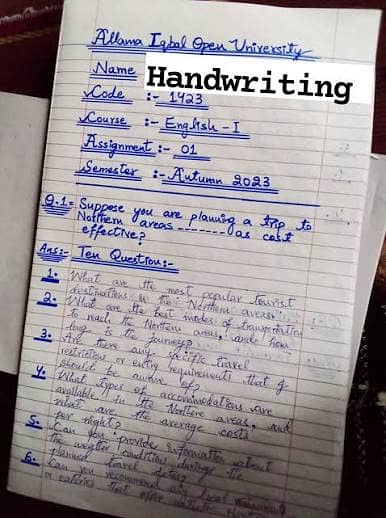 Allama Iqbal Open University
Name Handwriting
Code :- 1423
Course :- English - I
Assignment :- 01
Semester :- Autumn 2023
Q.1:- Suppose you are planning a trip to
Nothern areas -------as cost
effective?
Ans:- Ten Question:-
1. What are the most popular tourist
destinations in the Northern areas?
2. What are the best modes of transportation
to reach the Northern areas, and how
long is the journey?
3. Are there any specific travel
restriction or entry requirements that I
should be aware of?
4. What types of accommodations are
available in the Northern areas, and
what are the average costs
per night?
5. Can you provide information about
the weather conditions during the
planned travel dates?
6. Can you recommend any local
or eateries that offer